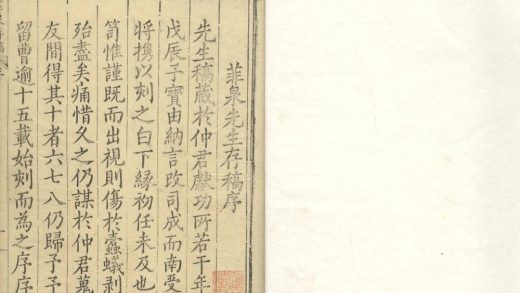 菲泉先生存稿序
先生稿蔵於仲君獻功所若干年
戊辰子寳由納言改司成而南受
將携以刻之白下縁初任未及也
笥惟謹既而出視則傷於蠧蟻剥
殆盡矣痛惜久之仍謀於仲君蒐
友間得其十者六七八仍歸予予
留曹逾十五載始刻而為之序序